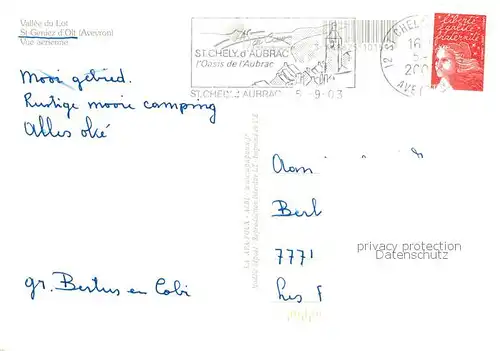 Vallée du Lot
St-Geniez d'Olt (Aveyron)
Vue aérienne
ST.CHELY, d'AUBRAC
l'Oasis de l'Aubrac
ST.CHELY, d'AUBRAC 5-9-03
12 ST CHELY
16
200
AVEY
liberté
égalité
fraternité
Mooi gebied.
Rustige mooie camping
Alles oké
gr. Bertus en Cobi
Aan
Berl
7771
Les
privacy protection
Datenschutz